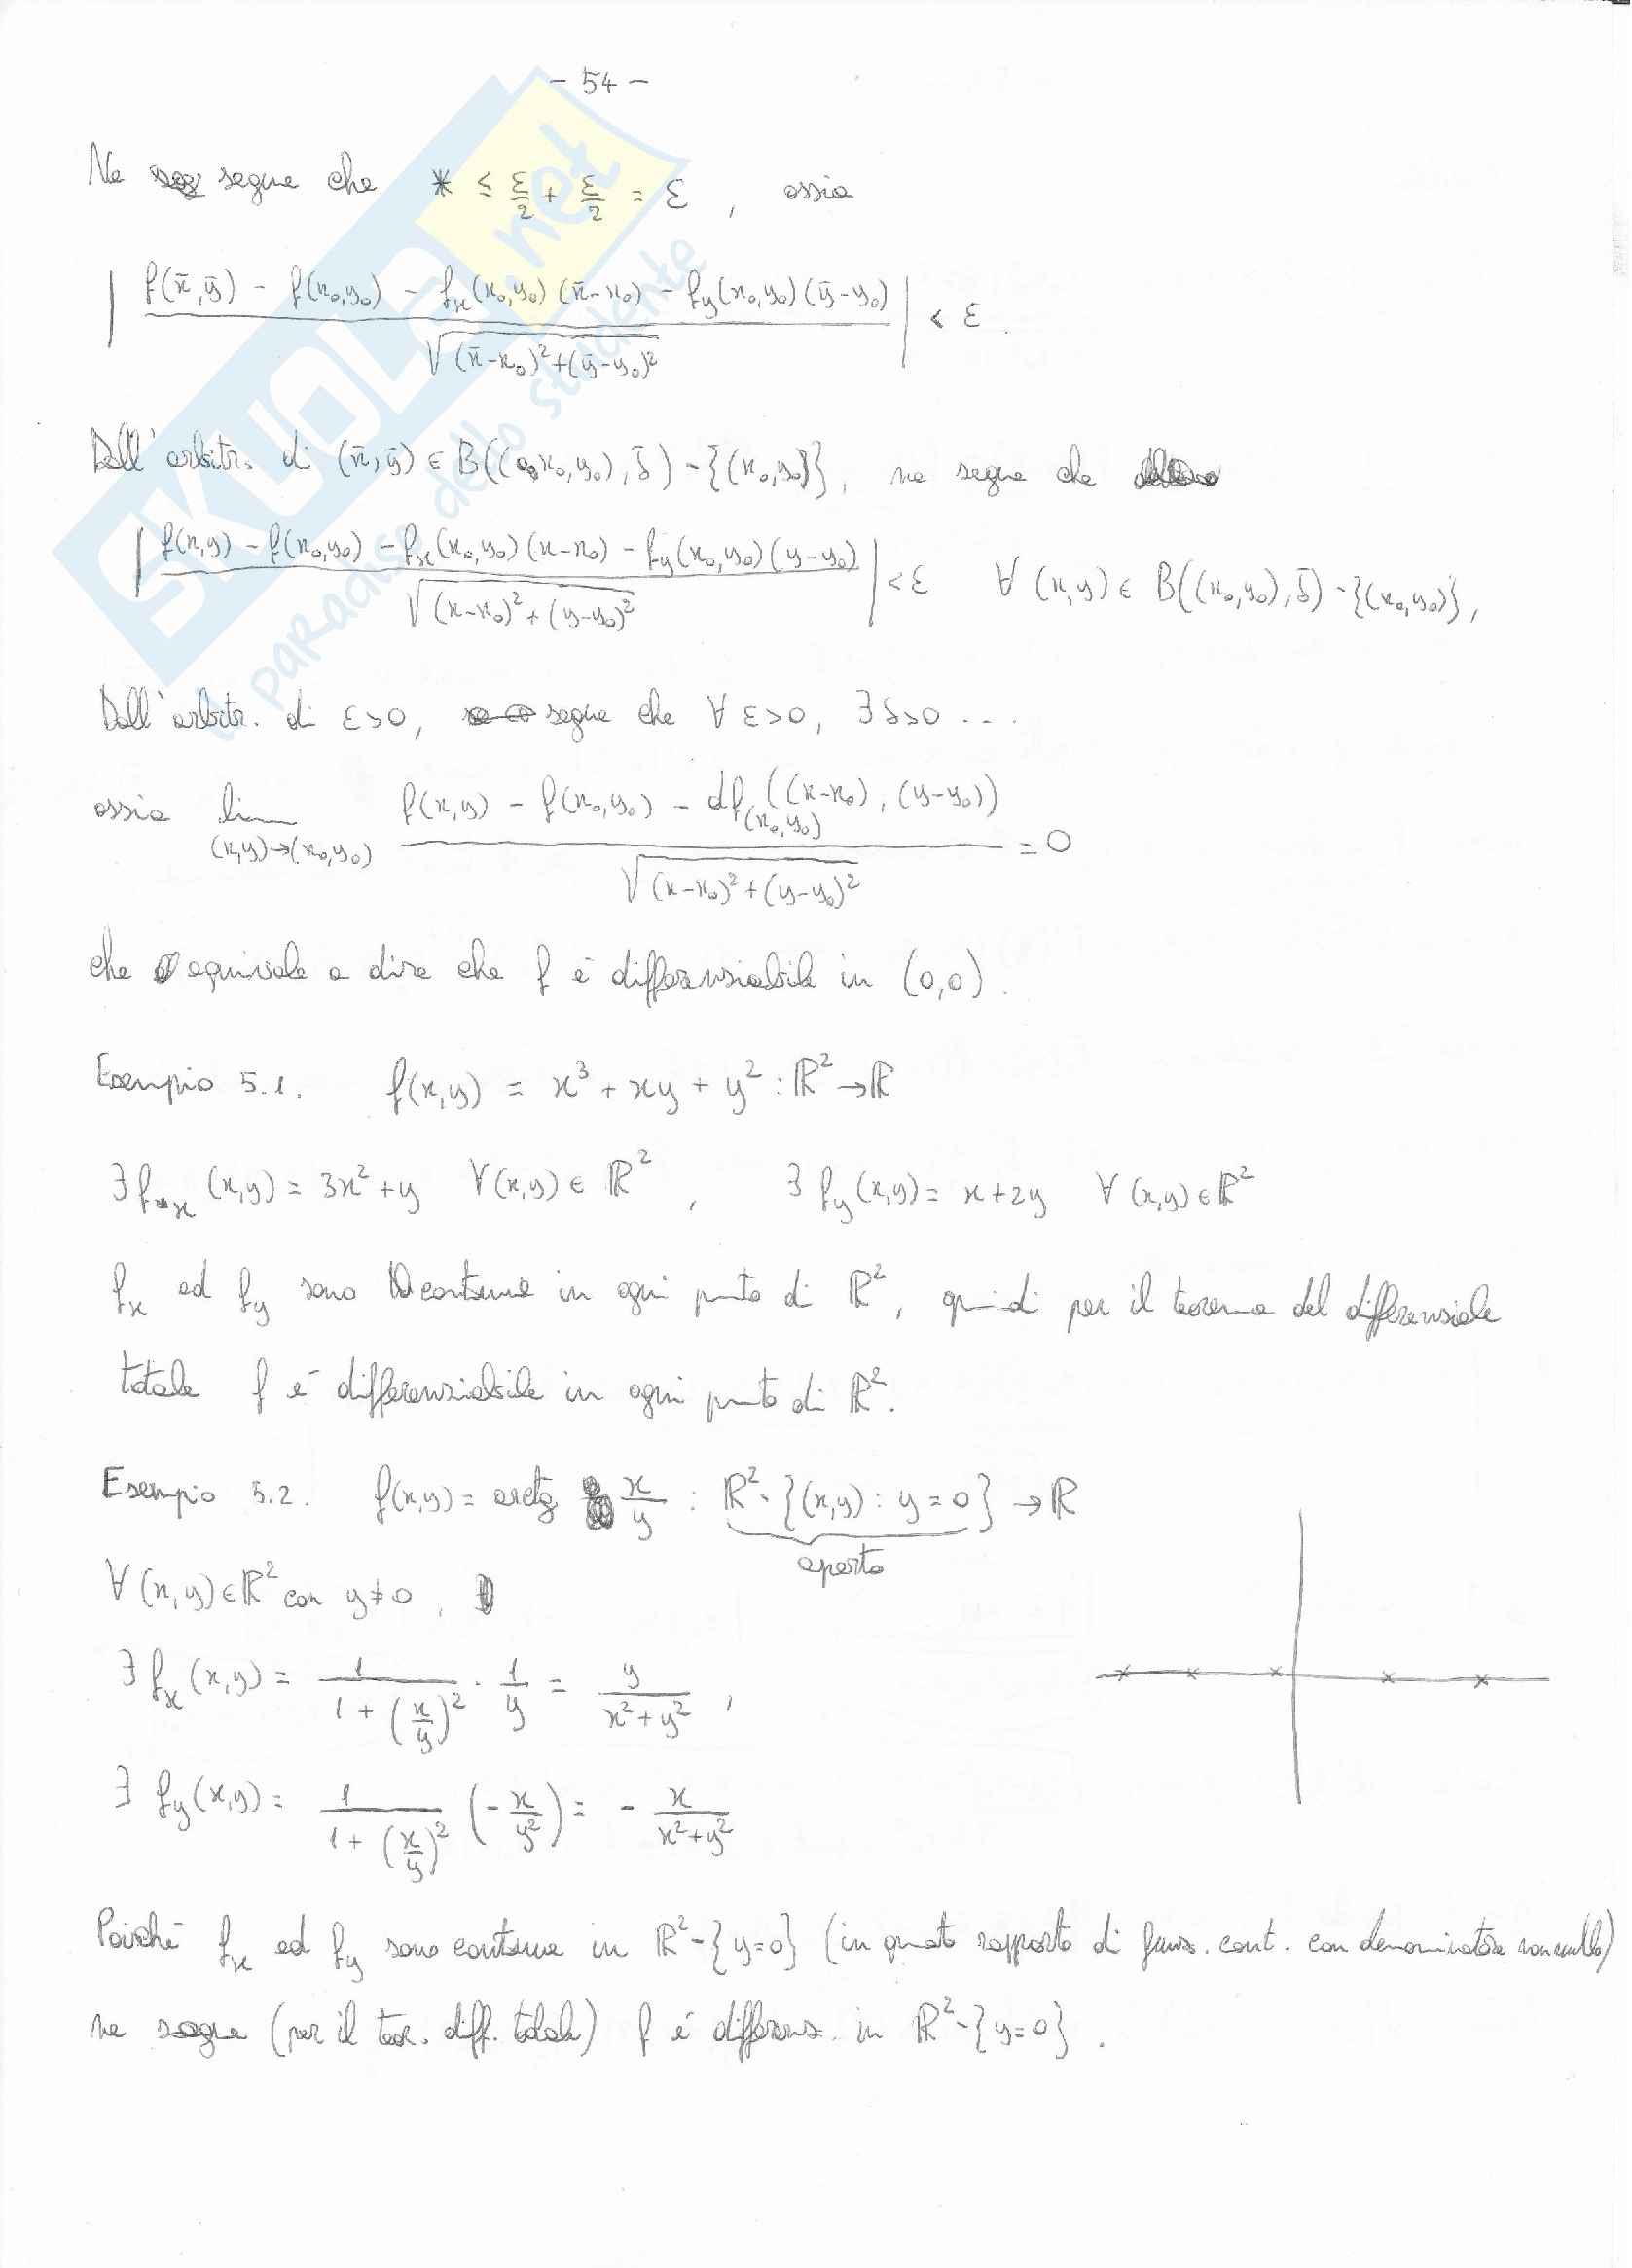 - 54 -
Ne segue che * ≤ ε/2 + ε/2 = ε , ossia
| f(x̄,ȳ) - f(x₀,y₀) - fₓ(x₀,y₀)(x̄-x₀) - f_y(x₀,y₀)(ȳ-y₀) / √((x̄-x₀)²+(ȳ-y₀)²) | < ε .
Dall'arbitr. di (x̄,ȳ) ∈ B((x₀,y₀),δ̄) - {(x₀,y₀)}, ne segue che
| f(x,y) - f(x₀,y₀) - fₓ(x₀,y₀)(x-x₀) - f_y(x₀,y₀)(y-y₀) / √((x-x₀)²+(y-y₀)²) | < ε ∀ (x,y) ∈ B((x₀,y₀),δ̄) - {(x₀,y₀)},
Dall'arbitr. di ε>0, segue che ∀ ε>0, ∃ δ>0 ...
ossia lim (x,y)→(x₀,y₀) f(x,y) - f(x₀,y₀) - df(x₀,y₀) ((x-x₀), (y-y₀)) / √((x-x₀)²+(y-y₀)²) = 0
che equivale a dire che f é differenziabile in (0,0).
Esempio 5.1. f(x,y) = x³ + xy + y² : ℝ² → ℝ
∃ fₓ (x,y) = 3x² + y ∀(x,y) ∈ ℝ² , ∃ f_y (x,y) = x + 2y ∀ (x,y) ∈ ℝ²
fₓ ed f_y sono continue in ogni punto di ℝ², quindi per il teorema del differenziale
totale f é differenziabile in ogni punto di ℝ².
Esempio 5.2. f(x,y) = arctg x/y : ℝ² - {(x,y) : y = 0} → ℝ
aperto
∀ (x,y) ∈ ℝ² con y ≠ 0,
∃ fₓ (x,y) = 1/(1 + (x/y)²) · 1/y = y/(x²+y²) ,
∃ f_y (x,y) = 1/(1 + (x/y)²) (-x/y²) = - x/(x²+y²)
Poiché fₓ ed f_y sono continue in ℝ² - {y=0} (in quanto rapporto di funz. cont. con denominatore non nullo)
ne segue (per il teor. diff. totale) f é differenz. in ℝ² - {y=0} .
SKUOLA.net
il paradiso dello studente